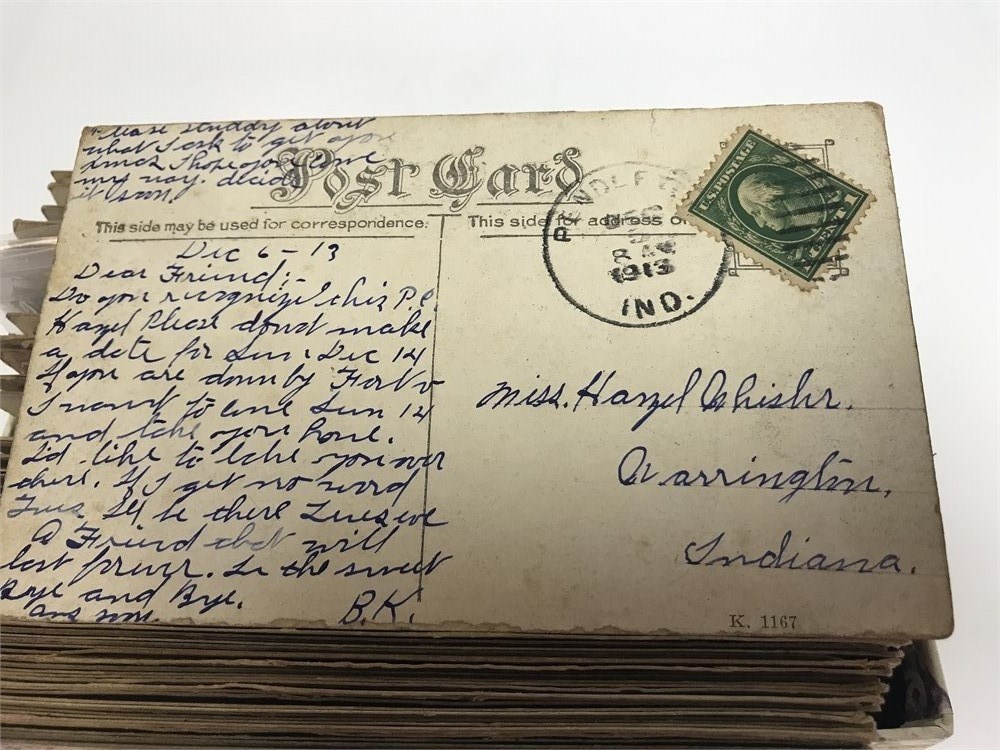 Please studdy about
what I ask to get your
I hope you give
my way. decide
it soon.
Post Card
This side may be used for correspondence.
This side for address on
PENDLET
8 AM
1913
IND.
U.S. POSTAGE
Dec 6-13
Dear Friend:-
Do you recognize this P.C.
Hazel Please dond make
a date for Sun. Dec 14
If you are down by Fort
I want to come Sun 14
and take you home.
I'd like to take you over
there. If I get no word
I'll be there
A Friend that will
last . In the sweet
Bye and Bye.
ans soon.
B.K.
Miss. Hazel
Warrington,
Indiana.
K. 1167